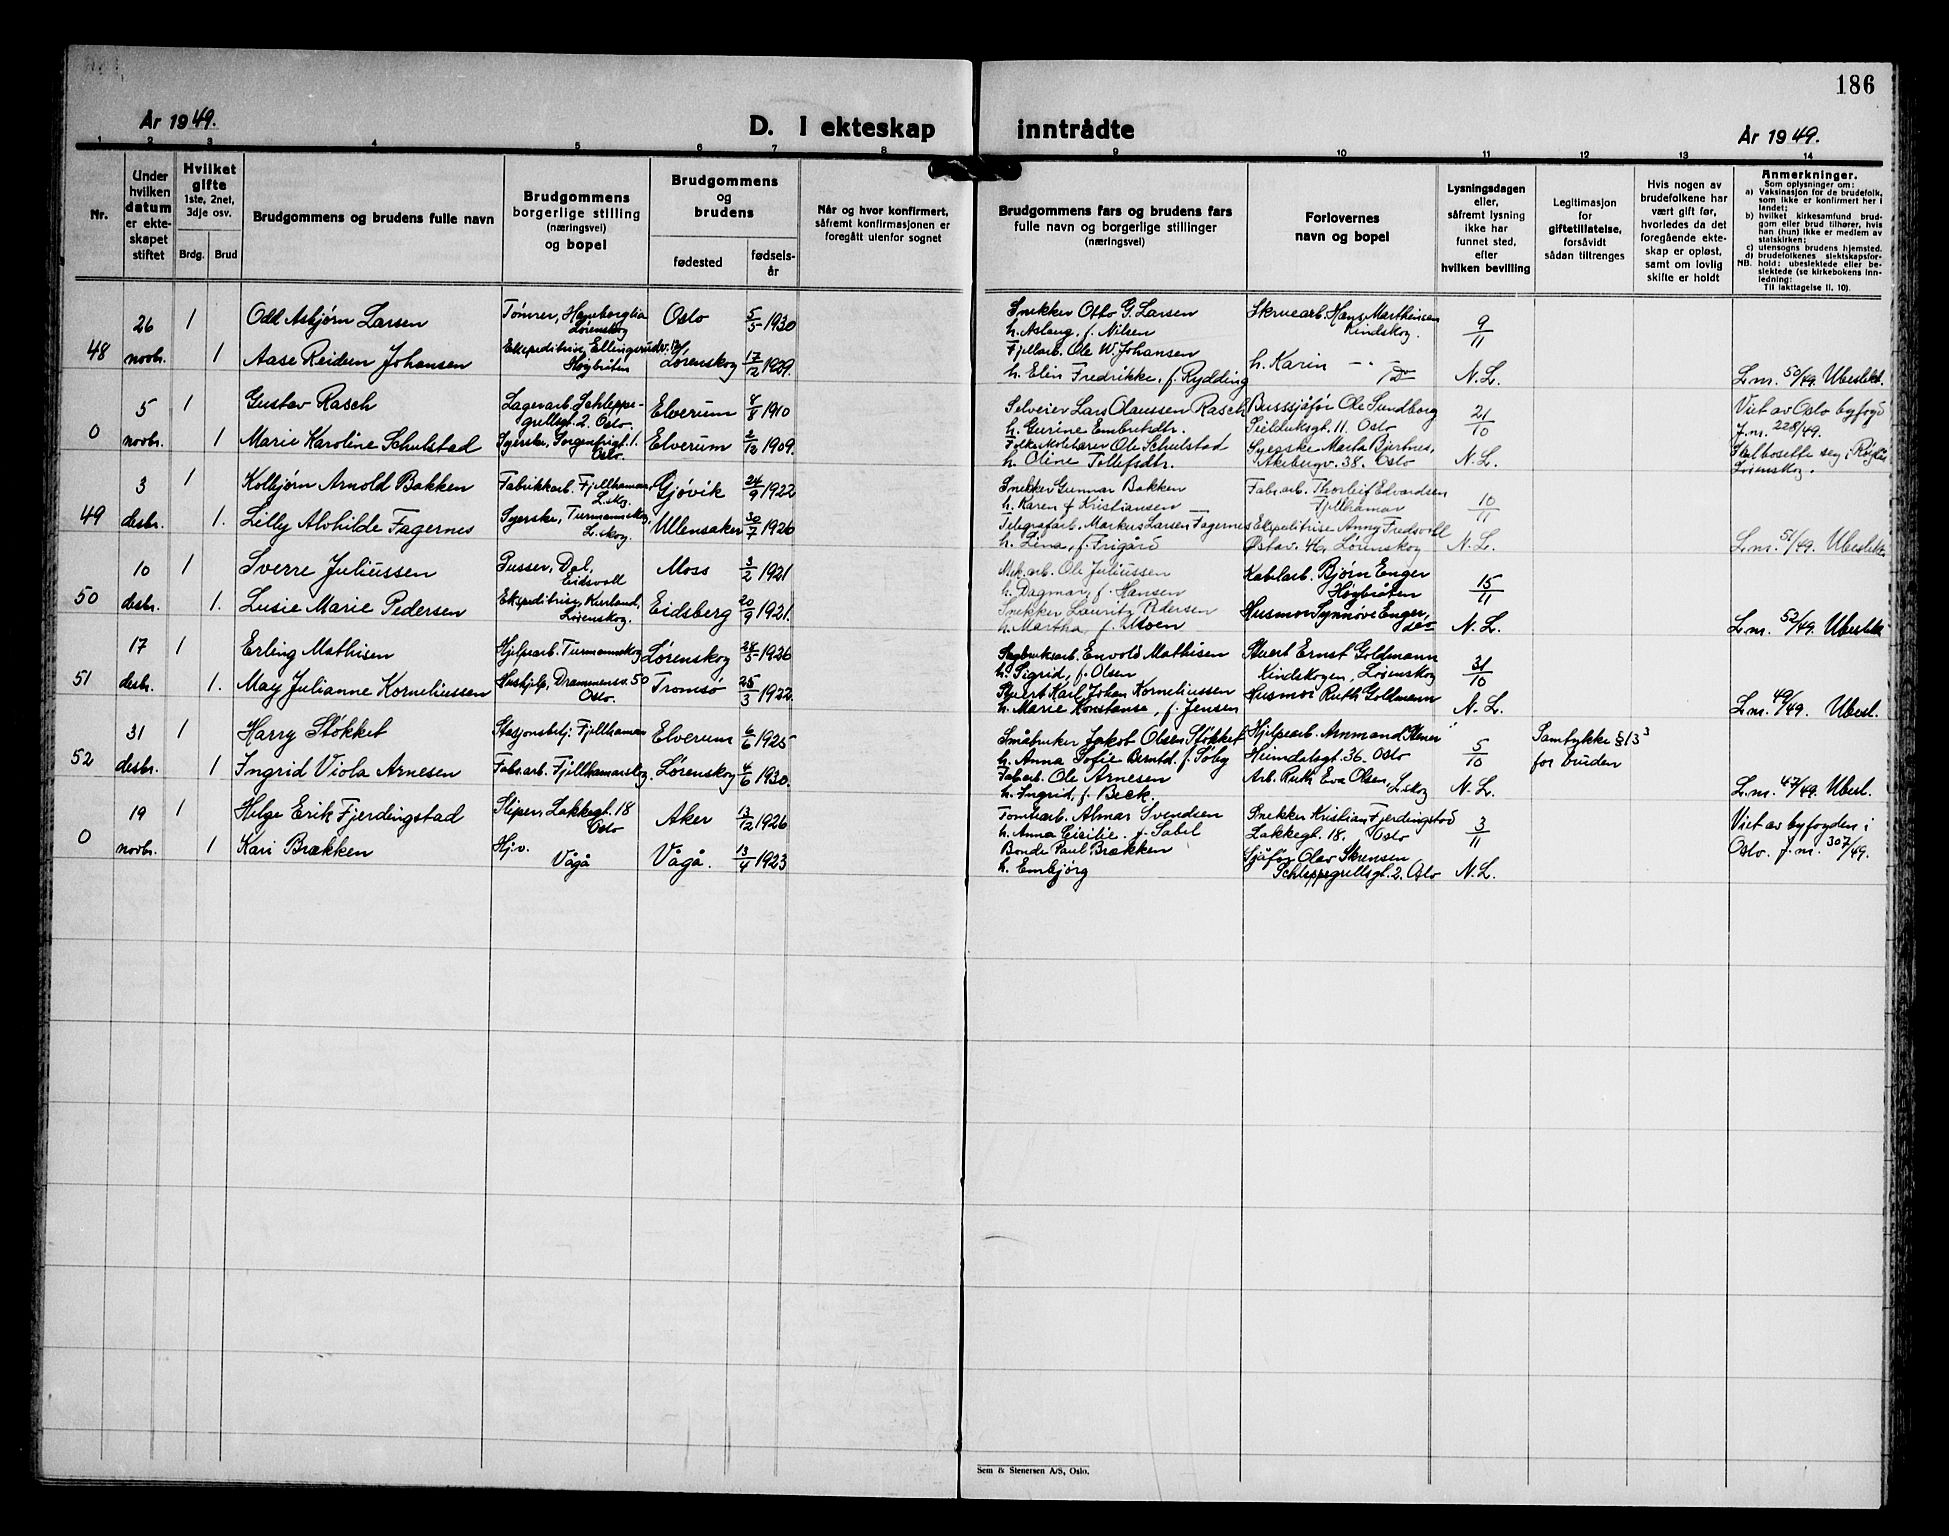 186
År 1949.
D. I ekteskap inntrådte
År 1949.
1 2 3 4 5 6 7 8 9 10 11 12 13 14
Nr.
Under hvilken datum er ekteskapet stiftet
Hvilket gifte
1ste, 2net, 3dje osv.
Brdg. Brud
Brudgommens og brudens fulle navn
Brudgommens borgerlige stilling (næringsvei) og bopel
Brudgommens og brudens
fødested
fødselsår
Når og hvor konfirmert, såfremt konfirmasjonen er foregått utenfor sognet
Brudgommens fars og brudens fars fulle navn og borgerlige stillinger (næringsvei)
Forlovernes navn og bopel
Lysningsdagen eller, såfremt lysning ikke har funnet sted, efter hvilken bevilling
Legitimasjon for giftetillatelse, forsåvidt sådan tiltrenges
Hvis nogen av brudefolkene har vært gift før, hvorledes da det foregående ekteskap er opløst, samt om lovlig skifte er holdt
Anmerkninger.
Som oplysninger om:
a) Vaksinasjon for de brudefolk, som ikke er konfirmert her i landet;
b) hvilket kirkesamfund brudgom eller brud tilhører, hvis han (hun) ikke er medlem av statskirken;
c) utensogns brudens hjemsted.
d) brudefolkenes slektskapsforhold: ubeslektede eller beslektede (se kirkebokens innledning:
NB. Til iakttagelse II. 10).
48
26 novbr. 1 Odd Asbjørn Larsen Tømrer, Haneborglia Lørenskog Oslo 5/5 1930 Snekker Otto G. Larsen h. Aslaug, f. Nilsen Skruearb. Hans Marthinsen Kindskog. 9/11
1 Aase Reidun Johansen Ekspeditrise, Ellingsrudv. Høybråten Lørenskog 17/12 1929. Fjellarb. Ole W. Johansen h. Elin Fredrikke, f. Rydding h. Karin N.L. L.m. 53/49. Ubeslekt.
0
5 novbr. 1 Gustav Rasch Lagerarb. Schleppegrellsgt. 2. Oslo. Elverum 4/8 1910 Selveier Lars Olaussen Rasch h. Gurine Embretsdtr. Bussjåfør Ole Sundborg Seilduksgt. 11. Oslo 21/10 Viet av Oslo byfogd
1 Marie Karoline Schulstad Syerske, Sorgenfrigt. 1. Oslo. Elverum 2/12 1909. Ole Schulstad h. Oline Tollefsdtr. Syerske Marta Bjertnes, Åkebergv. 38. Oslo N.L. J.m. 228/49. Skal bosette seg i Lørenskog.
49
3 desbr. 1 Kolbjørn Arnold Bakken Fabrikkarb. Fjellhamar, L.skog. Gjøvik 24/9 1922 Snekker Gunnar Bakken h. Karen f. Kristiansen Fabr.arb. Thorleif Edvardsen Fjellhamar 10/11
1. Lilly Alvhilde Fagernes Syerske, Turmannskog, L.skog. Ullensaker 30/7 1926 Telegrafarb. Markus Larsen Fagernes h. Lina, f. Frigård Ekspeditrise Anny Fredsvoll Østav. 4, Lørenskog N.L. L.m. 51/49. Ubeslekt.
50
10 desbr. 1 Sverre Juliussen Pusser, Dal, Eidsvoll Moss 3/2 1921 Mek.arb. Ole Juliussen h. Dagmar, f. Hansen Kabelarb. Bjørn Enger Høybråten 15/11
1. Lusie Marie Pedersen Ekspeditrise, Kurland, Lørenskog. Eidsberg 20/9 1921. Snekker Lauritz Pedersen h. Martha, f. Moen Husmor Synnøve Enger, do N.L. L.m. 52/49. Ubeslekt.
51
17 desbr. 1 Erling Mathisen Hjelpearb. Turmannskog Lørenskog 24/5 1926 Sagbruksarb. Envold Mathisen h. Sigrid, f. Olsen Stuert Ernst Goldmann Kindskogen, Lørenskog 31/10
1. May Julianne Korneliussen Hushjelp, Drammensv. 50 Oslo. Tromsø 25/3 1922. Stuert Karl Johan Korneliussen h. Marie Konstanse, f. Jensen Husmor Ruth Goldmann N.L. L.m. 49/49. Ubesl.
52
31 desbr. 1 Harry Støkket Stasjonsbetj. Fjellhamar Elverum 6/6 1925 Småbruker Jakob Olsen Støkket h. Anna Sofie Berntd. f. Søby Hjelpearb. Ammand Stener Heimdalsgt. 36. Oslo 5/10 Samtykke §13³ for bruden
1 Ingrid Viola Arnesen Fabr.arb. Fjellhamarskog. Lørenskog 4/6 1930. Fab.arb. Ole Arnesen h. Ingrid, f. Beck. Arb. Ruth Eva Olsen, L.skog N.L. L.m. 47/49. Ubesl.
0
19 novbr. 1 Helge Erik Fjerdingstad Sliper, Lakkegt. 18 Oslo Aker 13/12 1926 Tomtearb. Almar Svendsen h. Anna Cicilie, f. Sabel Snekker Kristian Fjerdingstad Lakkegt. 18. Oslo 3/11 Viet av byfogden i
1 Kari Brækken Hj.v. Vågå Vågå. 13/4 1923 Bonde Paul Brækken h. Embjørg Sjåfør Olav Skrensen Schleppegrellsgt. 2. Oslo N.L. Oslo. J.m. 307/49.
Sem & Stenersen A/S, Oslo.